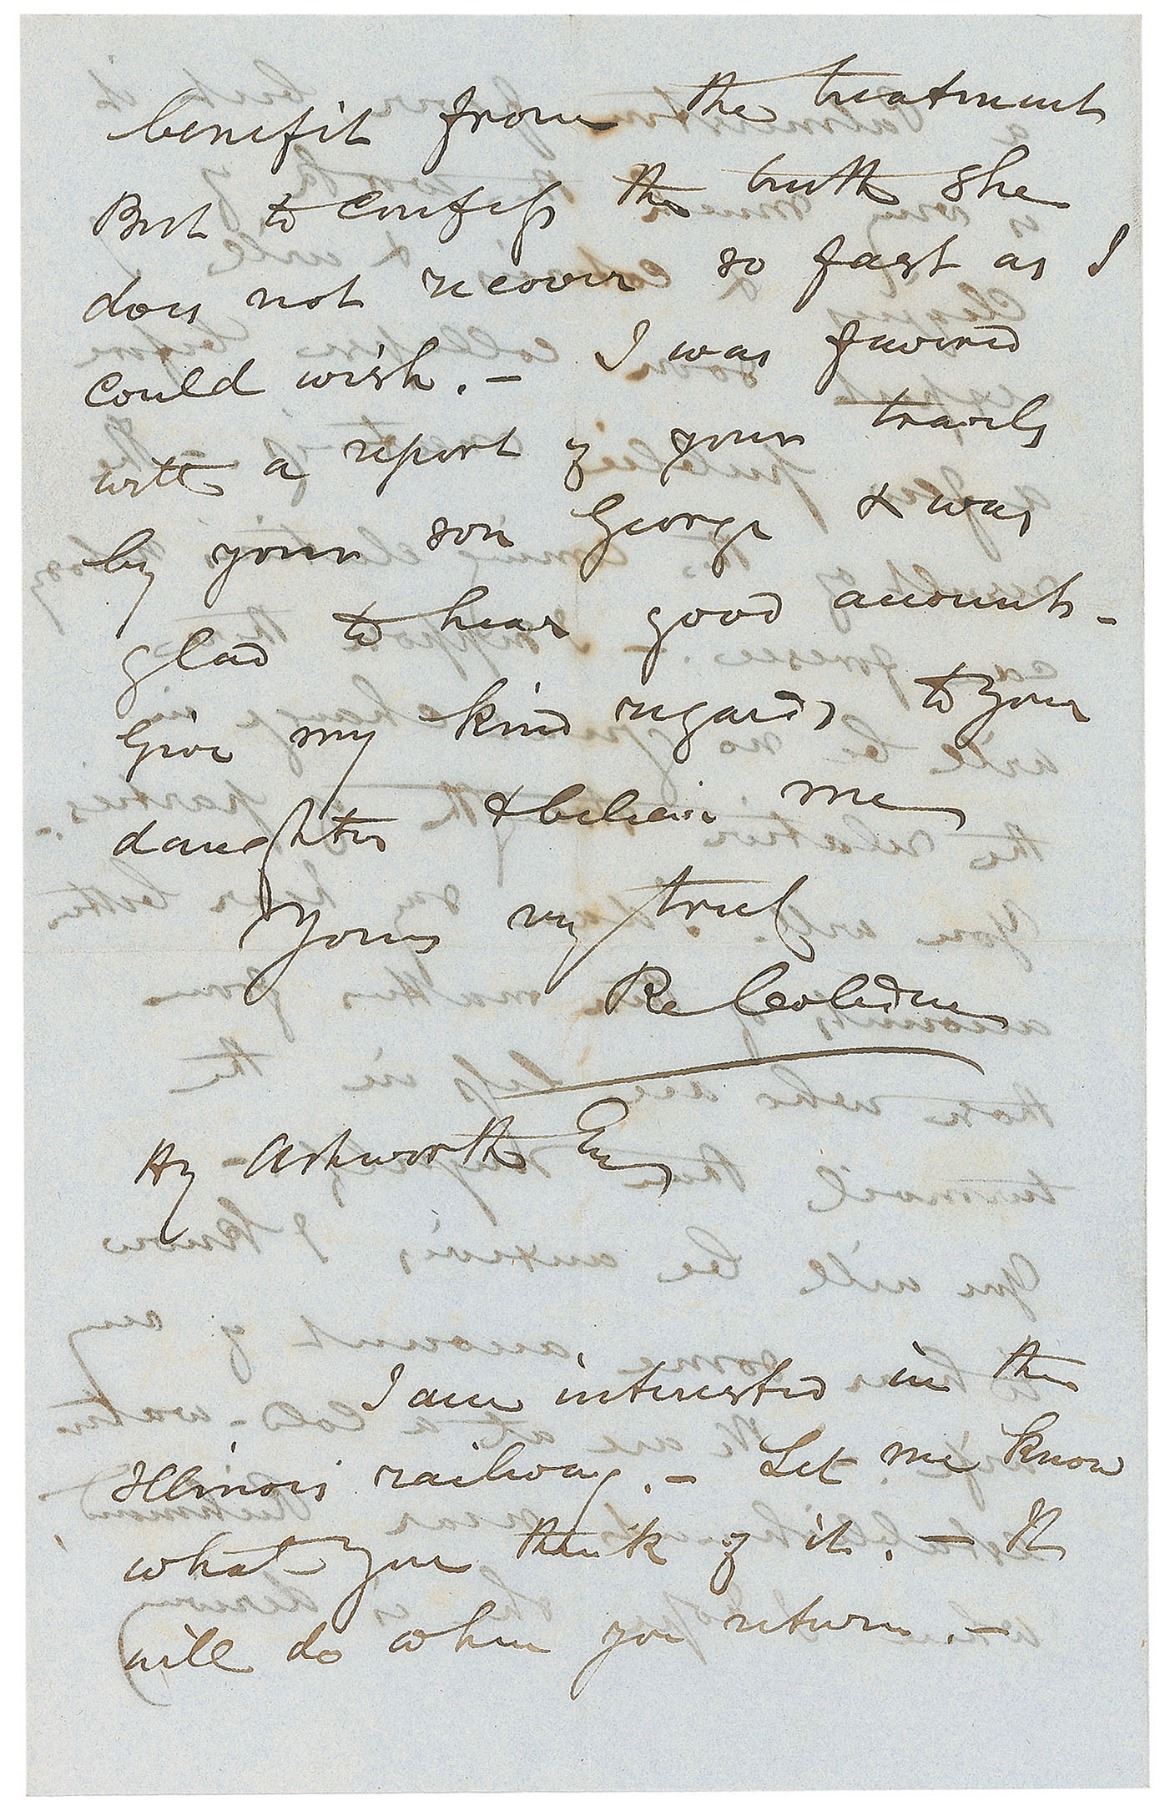 benefit from the treatment
But to confess the truth she
does not recover so fast as I
could wish. – I was favored
with a report of your travels
by your son George & was
glad to hear good accounts –
Give my kind regards to your
daughters & believe me
Yours very truly
R Cobden
Hy Ashworth Esq
I am interested in the
Illinois railway. – Let me know
what you think of it. – It
will do when you return. –